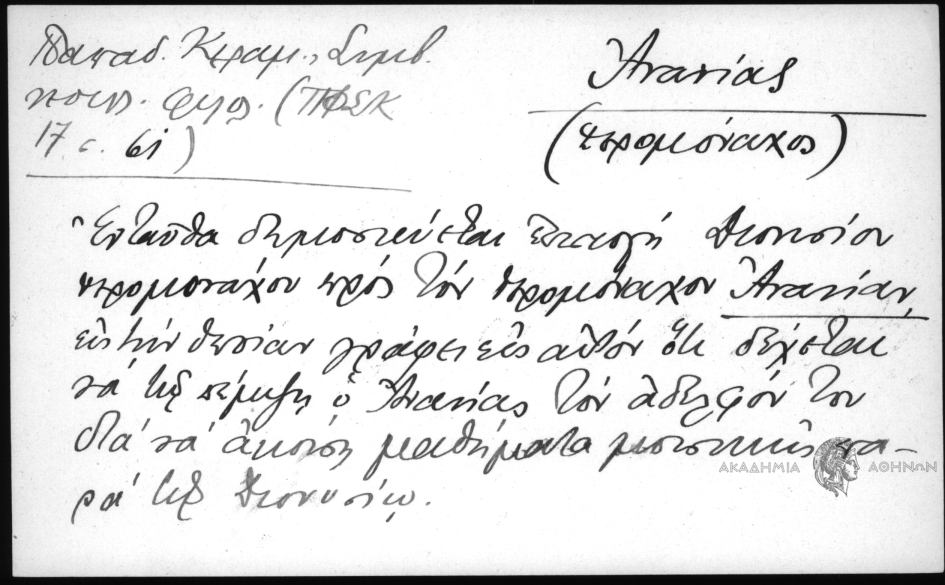 Παπαδ. Κεραμ., Συμβ.
ποιη. φιλ. (ΠΦΣΚ
17 σ. 61)
Ἀνανίας
(ἱερομόναχος)
Ἐνταῦθα δημοσιεύεται ἐπιστολὴ Διονυσίου
ἱερομονάχου πρὸς τὸν ἱερομόναχον Ἀνανίαν,
εἰς τὴν ὁποίαν γράφει εἰς αὐτὸν ὅτι δέχεται
νά τῷ πέμψῃ ὁ Ἀνανίας τὸν ἀδελφόν του
διά νά ἀκούσῃ μαθήματα μουσικῆς πα-
ρά τῷ Διονυσίῳ.
ΑΚΑΔΗΜΙΑ ΑΘΗΝΩΝ